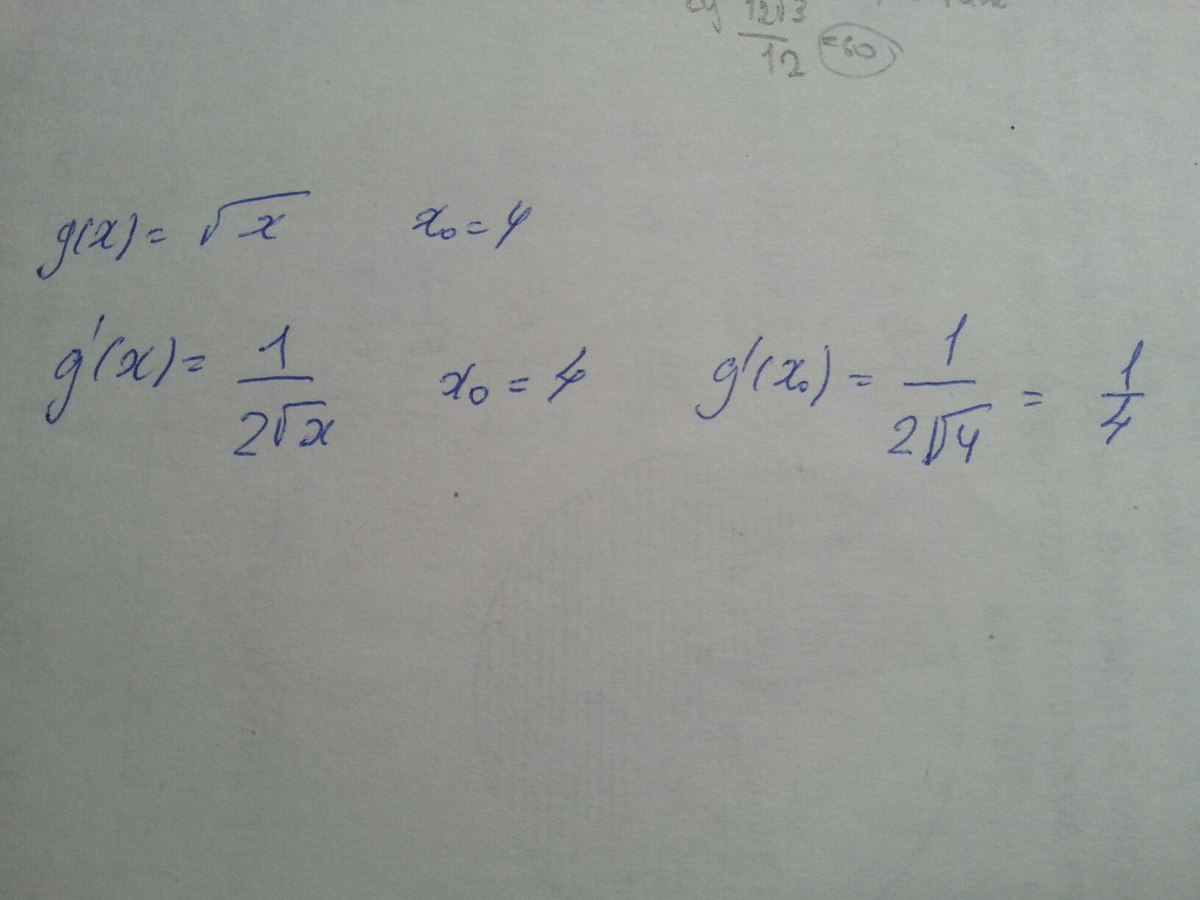 12√3
12 =60
g(x) = √x x₀ = 4
g'(x) = 1/(2√x) x₀ = 4 g'(x₀) = 1/(2√4) = 1/4